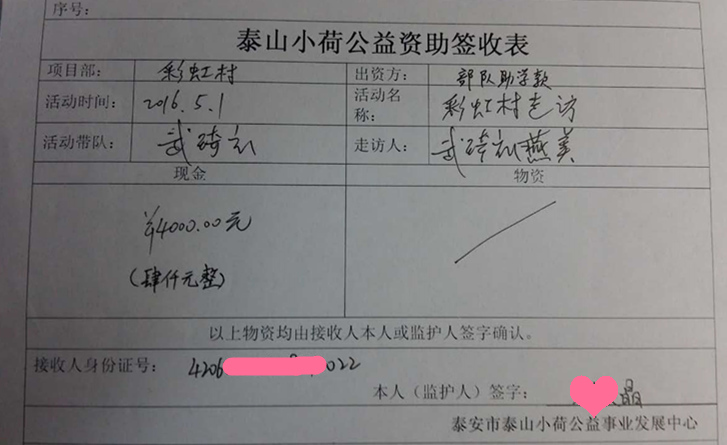 序号：
泰山小荷公益资助签收表
项目部： 彩虹村 出资方： 部队助学款
活动时间： 2016.5.1 活动名称： 彩虹村走访
活动带队： 武琦 走访人： 武琦 燕美
现金 物资
¥4000.00元
（肆仟元整）
以上物资均由接收人本人或监护人签字确认。
接收人身份证号： 4206 022
本人（监护人）签字： 晶
泰安市泰山小荷公益事业发展中心